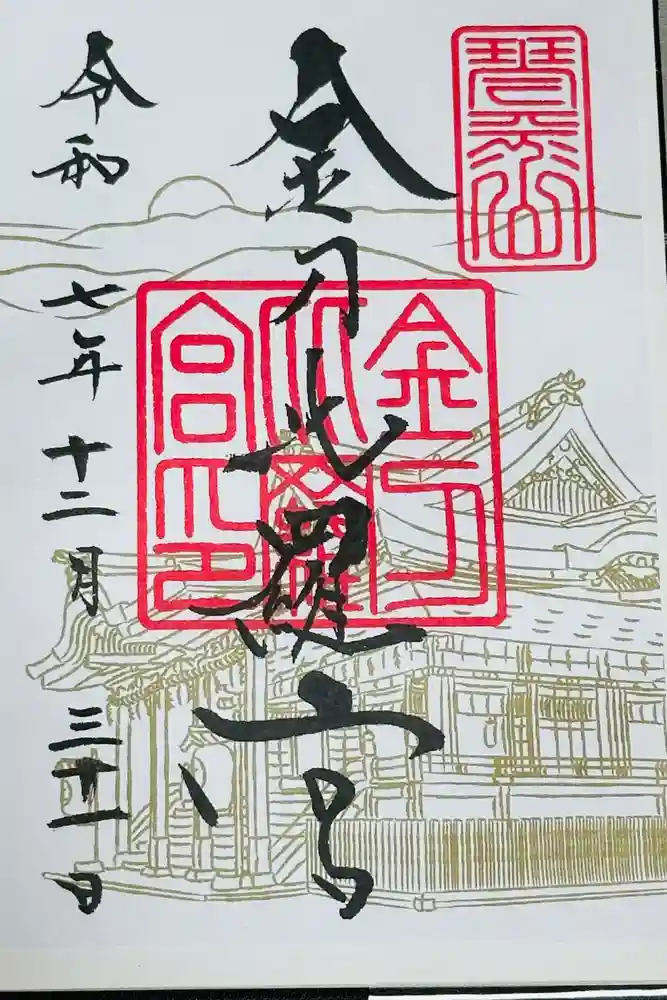 琴平山
金刀比羅宮
金刀
比羅
宮印
令和七年十二月三十一日